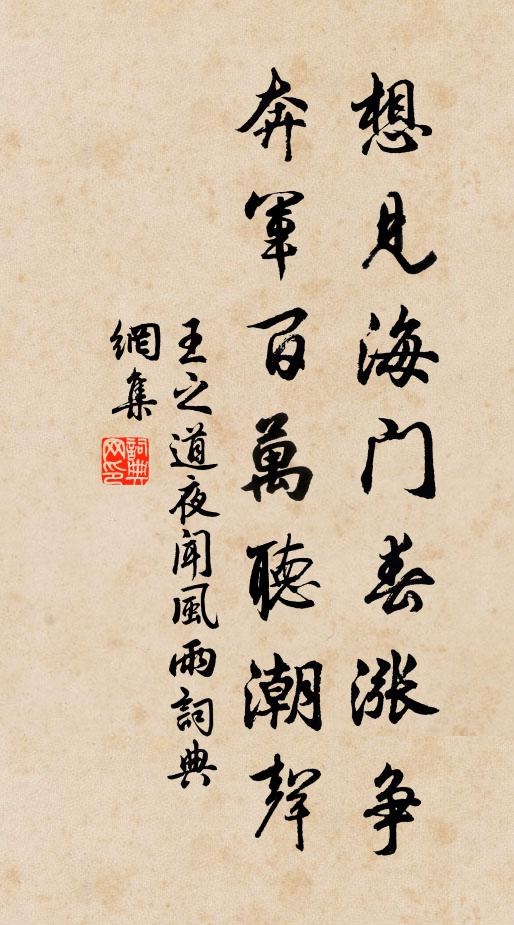 想見海門春漲争
奔軍百萬聽潮聲
王之道夜聞風雨詞典
網集
詞典
网印